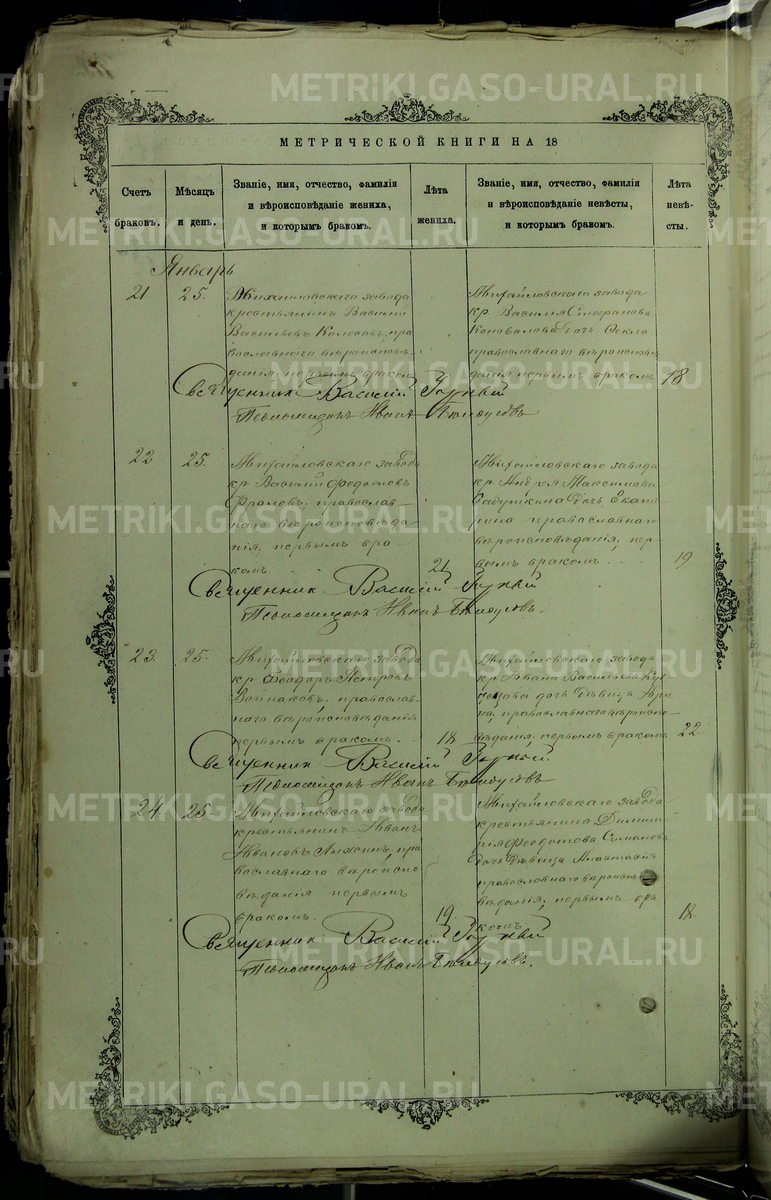 METRIKI.GASO-URAL.RU
МЕТРИЧЕСКОЙ КНИГИ НА 18
Счетъ браковъ.
Мѣсяцъ и день.
Званіе, имя, отчество, фамилія и вѣроисповѣданіе жениха, и которымъ бракомъ.
Лѣта жениха.
Званіе, имя, отчество, фамилія и вѣроисповѣданіе невѣсты, и которымъ бракомъ.
Лѣта невѣ-сты.
Январь
21 25.
Михайловскаго завода
крестьянинъ Василій
Васильевъ
православнаго вѣроисповѣ
данія, первымъ бракомъ
Михайловскаго завода
кр. Василія
Коновалова дочь Фекла
православнаго вѣроисповѣ
данія первымъ бракомъ 18
Священникъ Василій
Псаломщикъ Иванъ
22 25.
Михайловскаго завода
кр. Василій Федотовъ
Фроловъ. православ-
наго вѣроисповѣда
нія, первымъ бра
комъ 21
Михайловскаго завода
кр. Андрея Максимова
дочь Екате
рина православнаго
вѣроисповѣданія, пер-
вымъ бракомъ 19
Священникъ Василій
Псаломщикъ Иванъ
23. 25.
Михайловскаго завода
кр. Феодоръ Петровъ
православ-
наго вѣроисповѣданія
первымъ бракомъ. 18
Михайловскаго завода
кр. Ивана Васильева Куз
нецова дочь дѣвица Ири
на, православнаго вѣроиспо-
вѣданія, первымъ бракомъ 22
Священникъ Василій
Псаломщикъ Иванъ
24 25
Михайловскаго завода
крестьянинъ Иванъ
Ивановъ пра
вославнаго вѣроиспо
вѣданія первымъ
бракомъ. 19
Михайловскаго завода
крестьянина Димит
рія Федотова
дочь дѣвица Анастасія
православнаго вѣроиспо
вѣданія, первымъ бра
комъ 18
Священникъ Василій
Псаломщикъ Иванъ